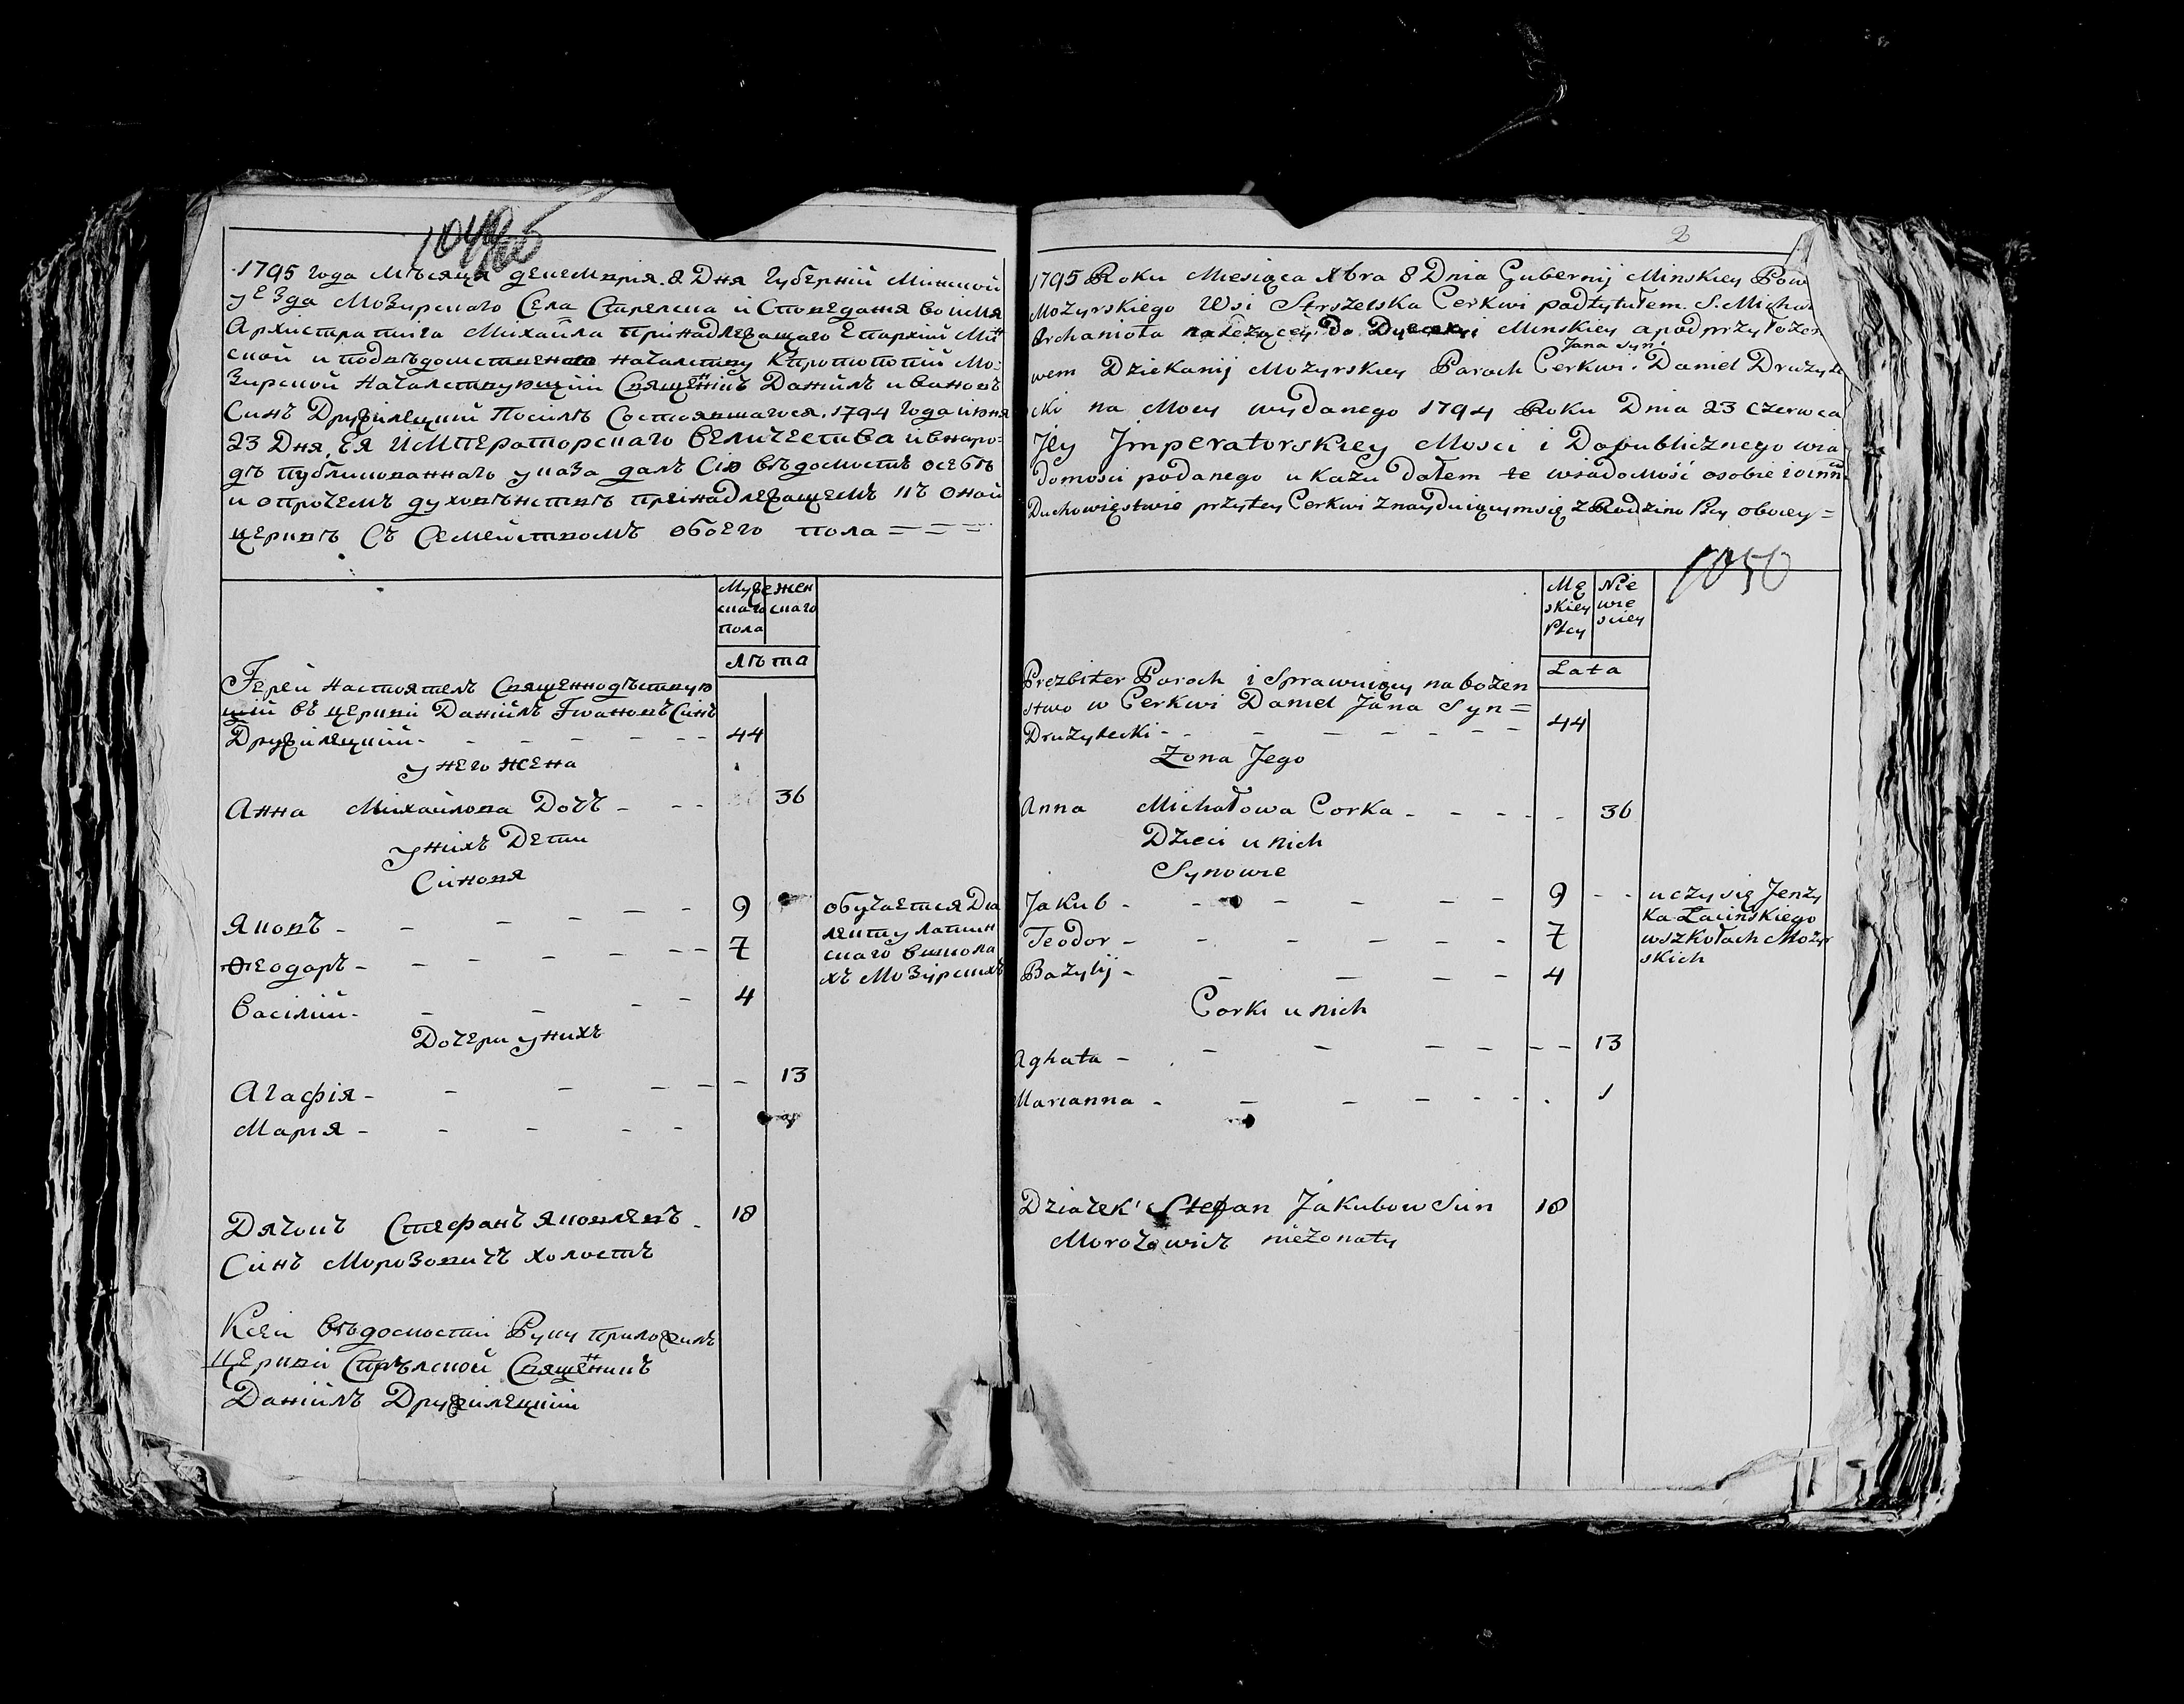 1795 года Мѣсяця декемврія 8 Дня Губерній Минской
уезда Мозирскаго Села Стрелска и Споведания во имя
Архистратига Михайла принадлежащаго Епархій Мин
ской и подвѣдомственаго началству Кпротопопій Мо:
зирской Началствующій Священникъ Даніилъ ивановъ
Синъ Дружилецкій Посилѣ Состоявшагося 1794 года июня
23 Дня Ея ИМператорскаго величества ивнаро=
дѣ публикованнаго указа далъ Сію вѣдомость осебѣ
и опрочемъ духовѣнствѣ преінадлежащемъ къ оной
церквѣ Съ Семействомъ обоего пола = = =
Муже женскаго скаго
пола
лѣта
Іерей настоятель Священнодѣйствую
щій въ церкви Даніилъ Iвановъ Синъ
Дружилецкий - 44
у него жена
Анна Михайлова Дочъ - 36
у нихъ Дети
Синовя
Яковъ - 9 обучается Dиа
лекту латин
Ѳеодоръ - 7 скаго вшкола
хъ Мозірскихъ
Василий - 4
Дочери унихъ
Агафія - 13
Марія -
Дячокъ Стефанъ Яковлевъ - 18
Синъ Морозовичъ холостъ
Ксей вѣдомости Руку приложилъ
церкви Стрѣлской Священикъ
Даніилъ Дружилецкій
2
1795 Roku Miesiąca Xbra 8 Dnia Gubernij Minskiey Pow
Mozyrskiego Wsi Strszelska Cerkwi padtytułem S. Michała
Archanioła należącey Do Dyecezyi Minskiey a pod przyłożon
Jana Syn
wem Dziekanij Mozyrskiey Paroch Cerkwi Daniel Drużyle
cki na Mocy wydanego 1794 Roku Dnia 23 Czerwca
Jey Jmperatorskiey Mosci i Dopublicznego wia
domosci podanego ukazu dałem te wiadomość osobie i oinn
Duchowięstwie przytey Cerkwi znayduiącymsię z Rodzino Płcy oboiey =
1050
Mę skiey Płcy
Nie wie sciey
Lata
Prezbiter Paroch i Sprawuiący nabożen
stwo w Cerkwi Daniel Jana Syn =
Drużylecki - 44
Żona Jego
Anna Michałowa Corka - 36
Dzieci u nich
Synowie
Jakub - 9 - uczy się Jenzy
ka Łacińskiego
Teodor - 7 wszkołach Mozyr
skich
Bazylij - 4
Corki u nich
Aghata - 13
Marianna - 1
Dziaczek Stefan Jakubow Sun 18
Morozowicz nieżonaty